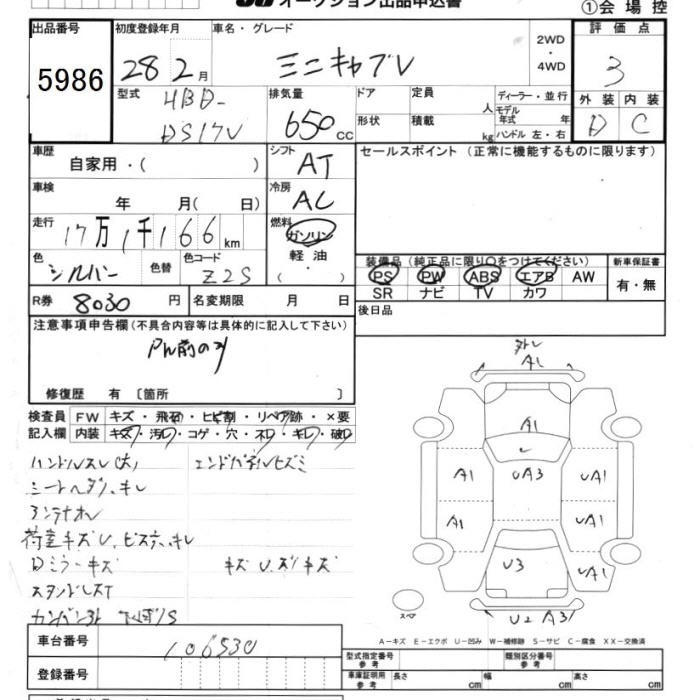 オークション出品申込書
①会場控
出品番号 初度登録年月 車名・グレード 評価点
5986 28 2月 ミニキャブV 2WD・4WD 3
型式 HBD-DS17V 排気量 650 CC ドア 定員 人 ディーラー・並行
形状 積載 kg モデル年式 年 ハンドル 左・右
外装 内装
D C
車歴 自家用・( ) シフト AT セールスポイント (正常に機能するものに限ります)
車検 年 月( 日) 冷房 AC
走行 17万1千166km 燃料 ガソリン 軽油・( )
色 シルバー 色替 色コード Z2S
装備品(純正品に限り○をつけてください) 新車保証書
PS PW ABS エアB AW 有・無
SR ナビ TV カワ
R券 8030円 名変期限 月 日 後日品
注意事項申告欄(不具合内容等は具体的に記入して下さい)
修復歴 有 〔箇所 〕
検査員 FW キズ・飛石・ヒビ割・リペア跡・×要
記入欄 内装 キズ・汚レ・コゲ・穴・ネジ・キレ・破レ
ハンドルスレ(大) エンドパネルヒズミ
シートヘタリ、キレ
アンテナオレ
荷室キズU、ビス穴、キレ
Dミラーキズ キズU、ズリキズ
外レ
A1
A1
A1 UA3 UA1
A1 UA1
U3 UA1
スペア
U2 A3
A-キズ E-エクボ U-凹み W-補修跡 S-サビ C-腐食 XX-交換済
車台番号 106530
登録番号
型式指定番号 参考 類別区分番号 参考
車庫証明用 参考 長さ cm 幅 cm 高さ cm